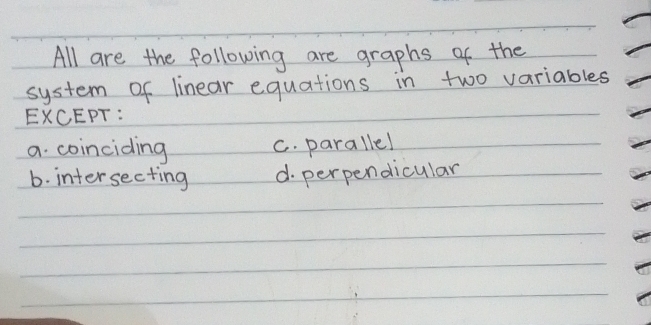 All are the following are graphs of the
system of linear equations in two variables
EXCEPT:
a. coinciding c. parallel
b. intersecting d. perpendicular